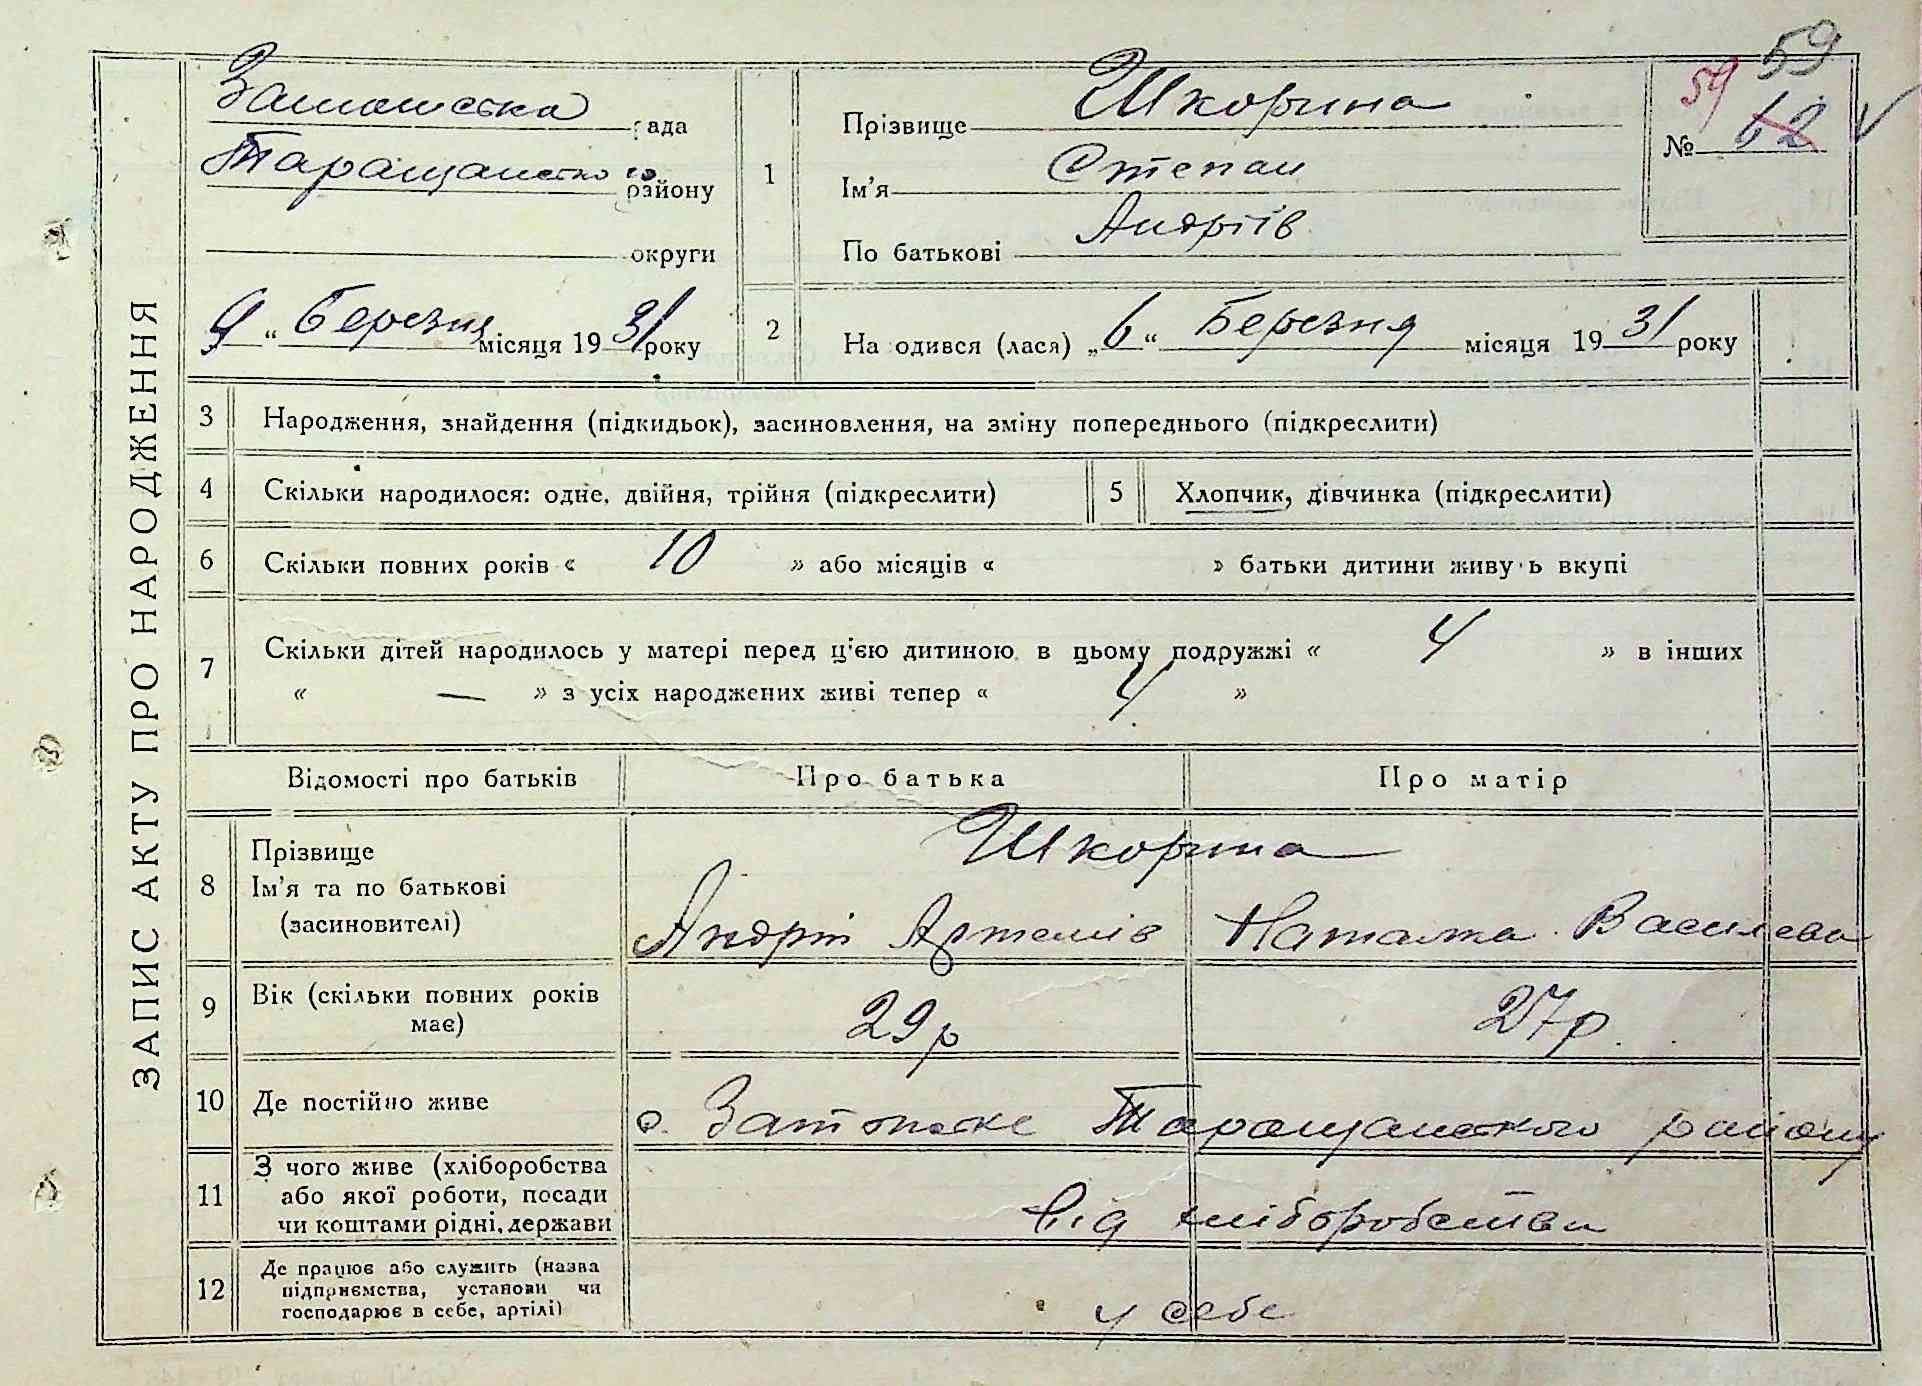 ЗАПИС АКТУ ПРО НАРОДЖЕННЯ
59
59
№ 62
рада
Таращанського району
округи
9 " Березня місяця 1931 року
1
Прізвище Шкорина
Ім'я Степан
По батькові Андріїв
2
На одився (лася) „ 6 " Березня місяця 1931 року
3 Народження, знайдення (підкидьок), засиновлення, на зміну попереднього (підкреслити)
4 Скільки народилося: одне, двійня, трійня (підкреслити)
5 Хлопчик, дівчинка (підкреслити)
6 Скільки повних років « 10 » або місяців « » батьки дитини живу ь вкупі
7 Скільки дітей народилось у матері перед ц'єю дитиною в цьому подружжі « 4 » в інших
« — » з усіх народжених живі тепер « 4 »
Відомості про батьків Про батька Про матір
8 Прізвище
Ім'я та по батькові
(засиновителі)
Шкорина
Андрій Артемів Наталка Василева
9 Вік (скільки повних років
має)
29р 27р.
10 Де постійно живе
с. Таращанського району
11 З чого живе (хліборобства
або якої роботи, посади
чи коштами рідні, держави
від хліборобства
12 Де працює або служить (назва
підприємства, установи чи
господарює в себе, артілі)
у себе